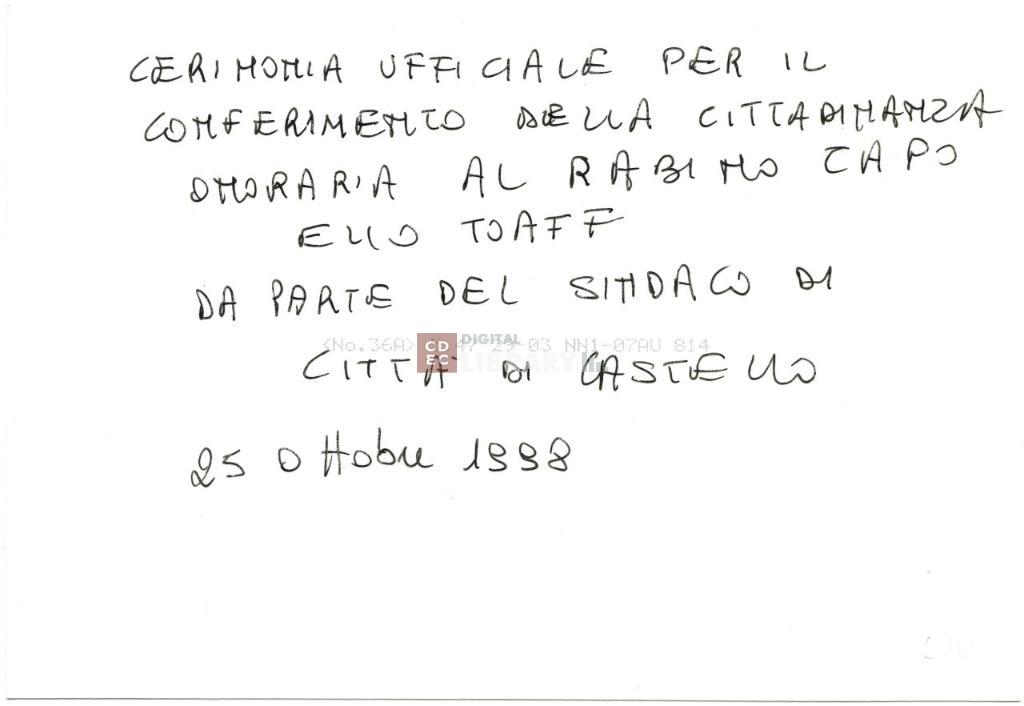 CERIMONIA UFFICIALE PER IL
CONFERIMENTO DELLA CITTADINANZA
ONORARIA AL RABINO CAPO
ELIO TOAFF
DA PARTE DEL SINDACO DI
<No.36A> 29-03 NN1-07AU 814
CDEC DIGITAL LIBRARY
CITTÀ DI CASTELLO
25 Ottobre 1998